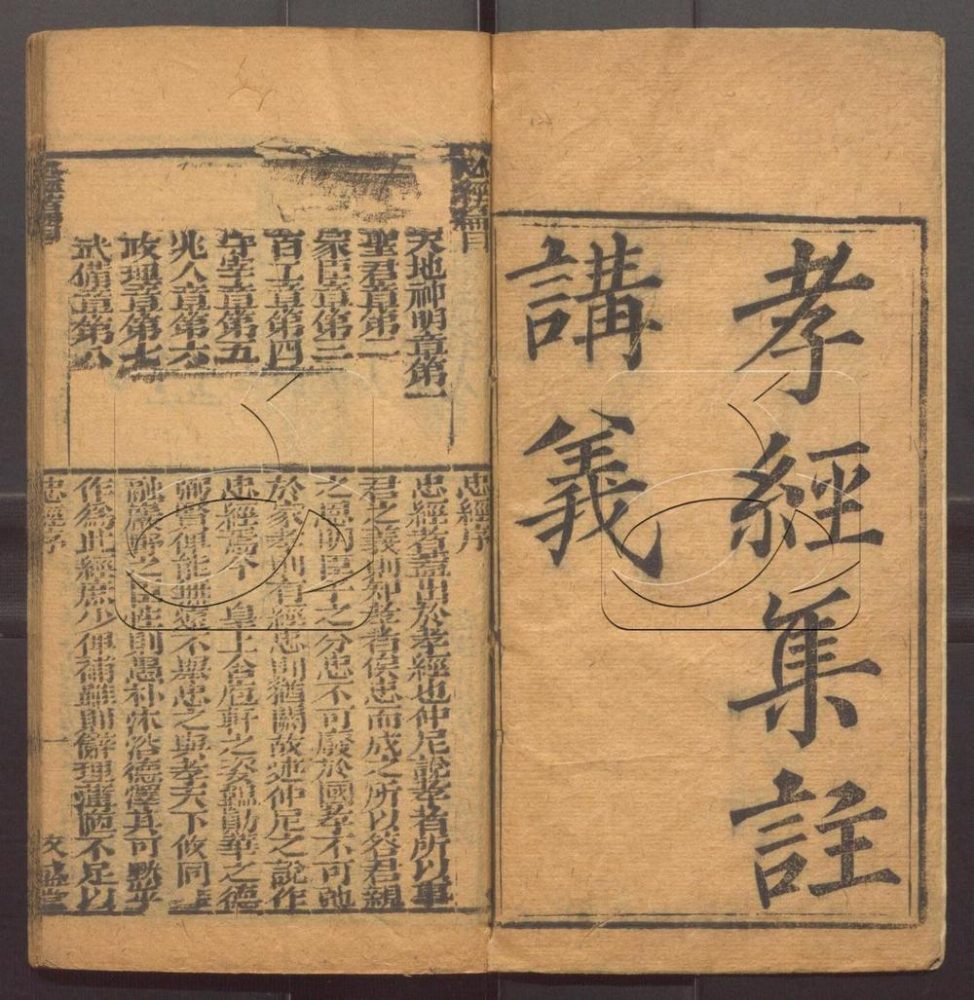 孝經集註
講義
忠經篇目
天地神明章第一
聖君章第二
冢臣章第三
百工章第四
守宰章第五
兆人章第六
政理章第七
武備章第八
忠經序
忠經者蓋出於孝經也仲尼說孝者所以事
君之義則知孝者俟忠而成之所以答君親
之恩明臣子之分忠不可廢於國孝不可弛
於家孝則有經忠則猶闕故述仲尼之說作
忠經焉今 皇上含庖軒之姿韞勛華之德
弼賢俾能無遠不舉忠之與孝天下攸同
融巖野之臣性則愚朴沐浴德澤其可默乎
作為此經庶少俾補雖則辭理薄陋不足以
忠經序
一
文盛堂